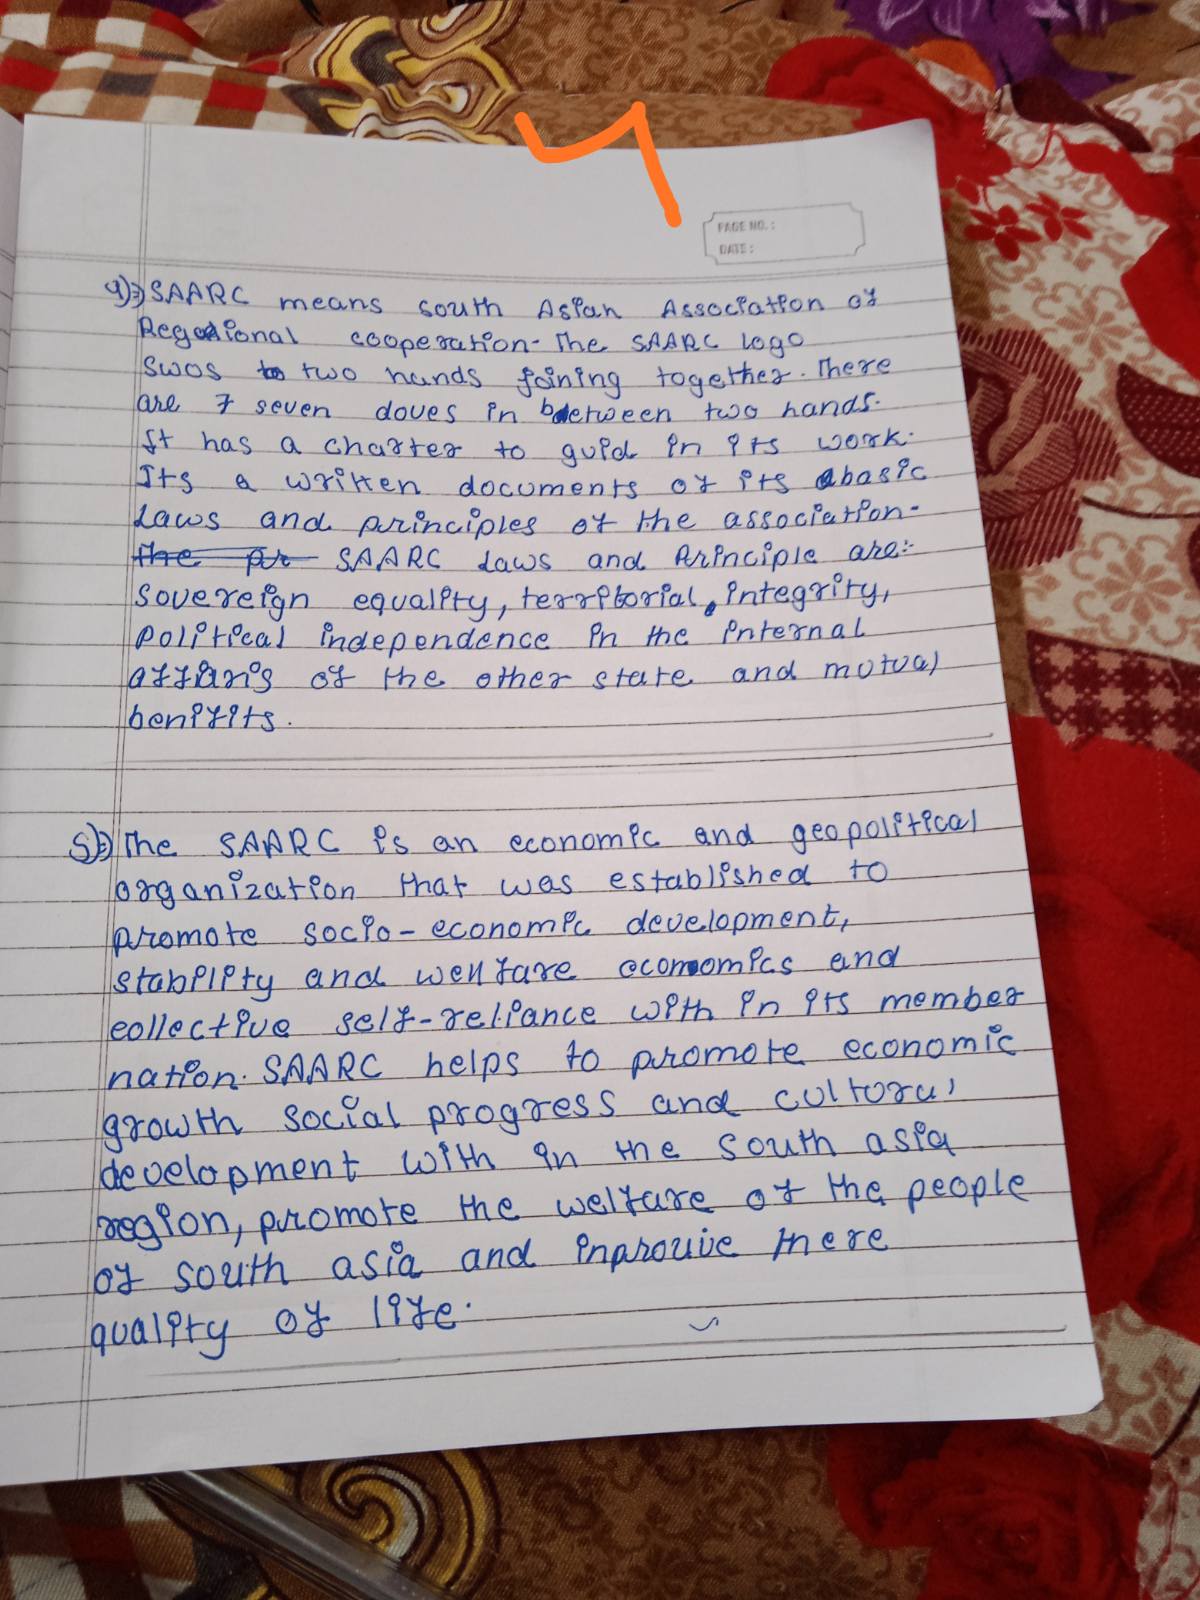 PAGE NO. :
DATE :
4)⇒ SAARC means south Asian Association of
Regional cooperation. The SAARC logo
Swos two hands joining together. There
are 7 seven doves in between two hands.
It has a charter to guid in its work.
Its a written documents of its basic
Laws and principles of the association.
the pr SAARC Laws and Principle are:-
Sovereign equality, territorial, integrity,
political independence in the internal
of the other state and mutual
benifits.
5)⇒ The SAARC is an economic and geopolitical
organization that was established to
promote socio-economic development,
stability and welfare economics and
collective self-reliance with in its member
nation. SAARC helps to promote economic
growth social progress and cultural
development with in the south asia
region, promote the welfare of the people
of south asia and inprouve there
quality of life.